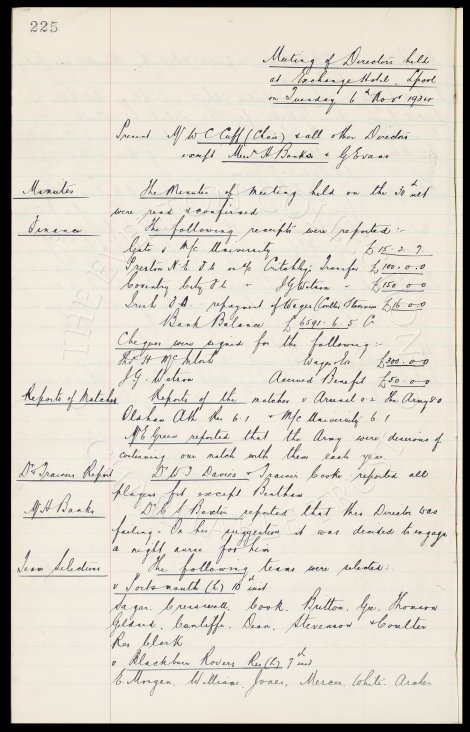 225
Meeting of Directors held
at Exchange Hotel, Lpool
on Tuesday 6th Novr 1934
Present Mr W C Cuff (Chair) & all other Directors
except Messrs A Banks & G Evans
Minutes The Minutes of Meeting held on the 30th ult
were read & confirmed
Finance The following receipts were reported :-
Gate v M/c University £15-2-9
Preston N.E. F.C. on a/c Critchley's Transfer £100-0-0
Coventry City F.C. " J G Watson " £150-0-0
Irish F.A. repayment of Wages (Coulter Stevenson £16-0-0
Bank Balance £6591-6-5 Cr
Cheques were signed for the following :-
Theo H McIntosh Wages &c £300-0-0
J.G. Watson Accrued Benefit £50-0-0
Reports of Matches Reports of the matches v Arsenal 0-2 The Army 8-0
Oldham Ath Res 6-1 & M/c University 6-1
Mr E Green reported that the Army were desirous of
continuing our match with them each year
Dr & Trainers Report Dr W J Davies & Trainer Cooke reported all
players fit except Bentham
Mr A Banks Dr C S Baxter reported that this Director was
failing. On his suggestion it was decided to engage
a night nurse for him
Team Selections The following teams were selected :-
v Portsmouth (h) 10th inst
Sagar. Cresswell. Cook. Britton. Gee. Thomson
Geldard. Cunliffe. Dean. Stevenson & Coulter
Res Clark
v Blackburn Rovers Res (h) 7th inst
E. Morgan. Williams. Jones. Mercer. White. Archer